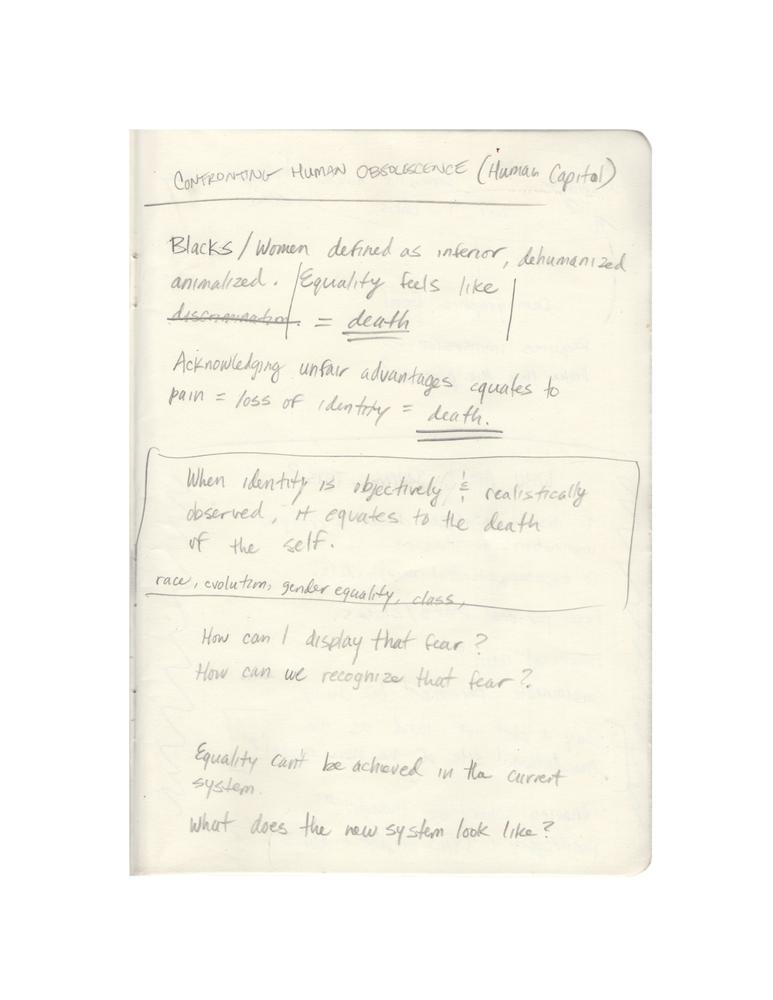 CONFRONTING HUMAN OBSOLESCENCE (Human Capital)
Blacks / Women defined as inferior, dehumanized
animalized. | Equality feels like |
discrimination. = death
Acknowledging unfair advantages equates to
pain = loss of identity = death.
When identity is objectively & realistically
observed, it equates to the death
of the self.
race, evolution, gender equality, class,
How can I display that fear?
How can we recognize that fear?
Equality can't be achieved in the current
system.
What does the new system look like?